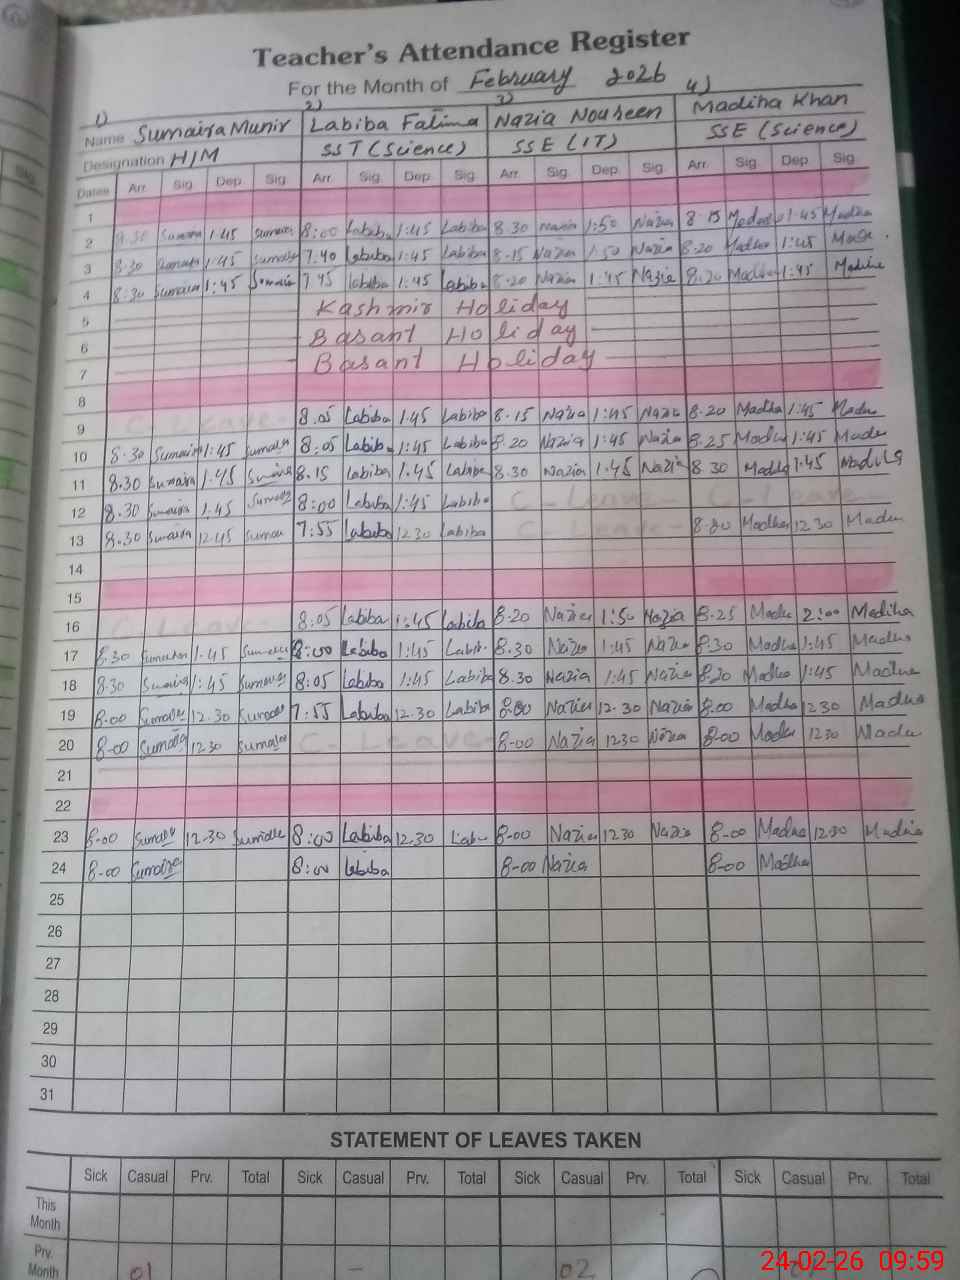 Teacher's Attendance Register
For the Month of February 2026
1) 2) 3) 4)
Name Sumaira Munir Labiba Fatima Nazia Nousheen Madiha Khan
Designation H/M SST (Science) SSE (IT) SSE (Science)
Dates Arr. Sig. Dep. Sig. Arr. Sig. Dep. Sig. Arr. Sig. Dep. Sig. Arr. Sig. Dep. Sig.
1
2 8.30 Sumaira 1:45 Sumaira 8:00 Labiba 1:45 Labiba 8.30 Nazia 1:50 Nazia 8.15 1:45 Madiha
3 8:30 Sumaira 1:45 Sumaira 7:40 Labiba 1:45 Labiba 8.15 Nazia 1:50 Nazia 8:20 1:45
4 8:30 Sumaira 1:45 Sumaira 7:45 Labiba 1:45 Labiba 8.20 Nazia 1:45 Nazia 8:20 1:45
5 Kashmir Holiday
6 Basant Holiday
7 Basant Holiday
8
9 C-Leave- 8.05 Labiba 1:45 Labiba 8.15 Nazia 1:45 Nazia 8.20 Madiha 1:45
10 8.30 Sumaira 1:45 8:05 Labiba 1:45 Labiba 8.20 Nazia 1:45 Nazia 8.25 1:45
11 8.30 Sumaira 1.45 8.15 Labiba 1.45 Labiba 8.30 Nazia 1.45 Nazia 8.30 1.45
12 8.30 Sumaira 1.45 8:00 Labiba 1:45 Labiba C-Leave- C-Leave-
13 8.30 Sumaira 12.45 7:55 Labiba 12.30 Labiba C-Leave- Madiha 12.30
14
15
16 C-Leave- 8:05 Labiba 1:45 Labiba 8.20 Nazia 1:50 Nazia 8.25 2:00 Madiha
17 8.30 1.45 8:00 Labiba 1:45 8.30 Nazia 1:45 Nazia 8.30 1:45
18 8.30 Sumaira 1:45 8:05 Labiba 1:45 Labiba 8.30 Nazia 1:45 Nazia 1:45
19 8.00 12.30 7:55 Labiba 12.30 Labiba 8:00 12.30 Nazia 8.00 12.30
20 8-00 12.30 C-Leave- 8-00 Nazia 12.30 8-00 12.30
21
22
23 8-00 12.30 8:00 Labiba 12.30 8-00 Nazia 12.30 Nazia 8-00 12.30
24 8-00 Sumaira 8:00 Labiba 8-00 Nazia 8-00 Madiha
25
26
27
28
29
30
31
STATEMENT OF LEAVES TAKEN
Sick Casual Prv. Total Sick Casual Prv. Total Sick Casual Prv. Total Sick Casual Prv. Total
This Month
Prv. Month 01 - 02
24-02-26 09:59